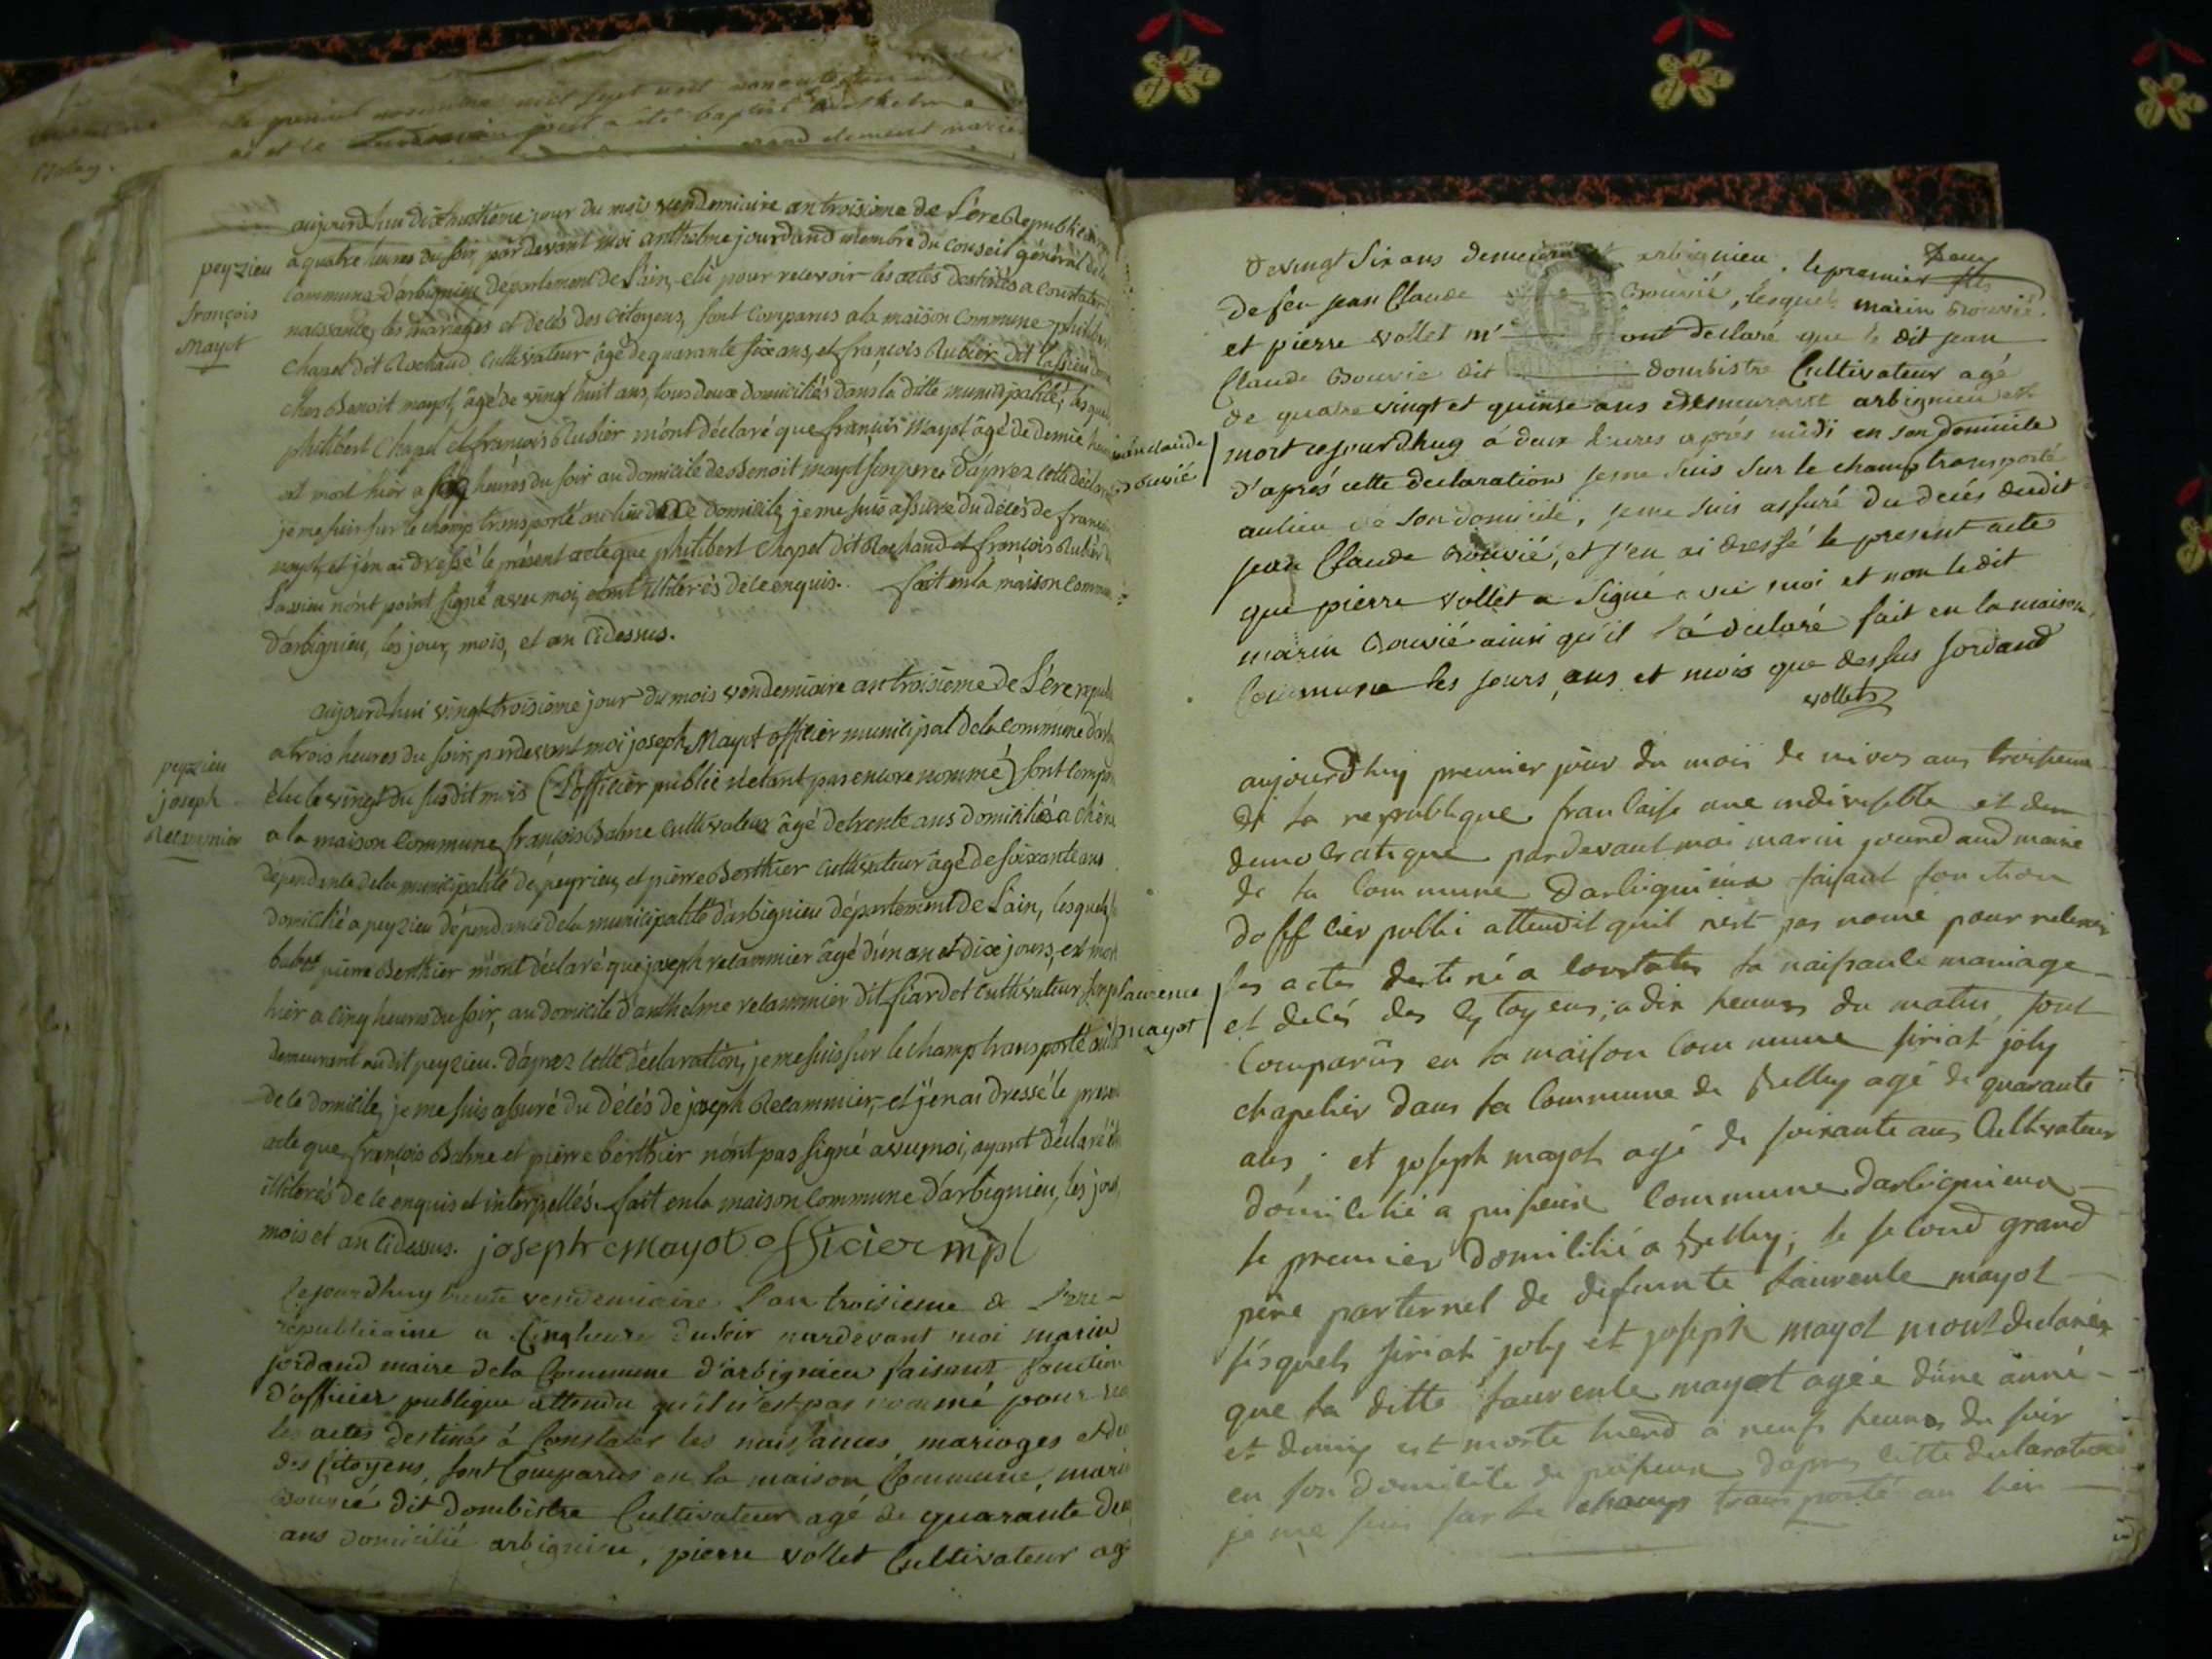 Le premier novembre mil sept cent nonante
a été baptisé
peyzieu
françois
Mayot
aujourdhui dixhuitième jour du mois vendemiaire an troisieme de L'ere Republicaine
a quatre heures du soir, par devant moi anthelme jourdand membre du Conseil général de la
Commune d'arbignieu département de L'ain, elu pour recevoir les actes destinés a Constater
naissance, les mariages et décés des citoyens, sont Comparus a la maison Commune philibert
Chapel dit Rochand Cultivateur âgé de quarante six ans, et françois Rubier dit Lassieu
ches Benoit mayot, âgé de vingt huit ans, tous deux domiciliés dans la ditte municipalité; lesquels
philibert Chapel et françois Rubier m'ont déclaré que françois Mayot âgé de demie heure
est mort hier a heures du soir au domicile de Benoit mayot son pere. D'aprez cette déclaration
je me suis sur le champ transporté au lieu de ce domicile, je me suis assuré du décés de françois
mayot, et j'en ai dressé le présent acte que philibert Chapel dit Rochand et françois Rubier dit
Lassieu n'ont point signé avec moi, etant illiterés de ce enquis. fait en la maison Commune
D'arbignieu, les jour, mois, et an cidessus.
peyzieu
joseph
Relammier
aujourd'hui vingt troisième jour du mois vendemiaire an troisième de L'ere republ
a trois heures du soir, pardevant moi joseph Mayot officier municipal de la Commune d'arb
élu le vingt du susdit mois (L'officier public n'etant pas encore nommé) sont comparu
a la maison Commune, françois Balme cultivateur âgé de trente ans domicilié a
dépendante de la municipalité de peyrieu, et pierre Berthier cultivateur âgé de soixante ans
domicilié a peyzieu dépendance de la municipalité d'arbignieu département de L'ain, lesquels
pierre Berthier m'ont déclaré que joseph relammier âgé d'un an et dix jours, est mort
hier a cinq heures du soir, au domicile d'anthelme relammier dit fiardet Cultivateur son p
demeurant audit peyzieu. D'aprez cette déclaration, je me suis sur le champ transporté au l
de ce domicile, je me suis assuré du décés de joseph Relammier, et j'en ai dressé le présent
acte que françois Balme et pierre berthier n'ont pas signé avec moi, ayant déclaré être
illiterés de ce enquis et interpellés. fait en la maison Commune d'arbignieu, les jour,
mois et an cidessus. joseph Mayot officier mpl
Cejourdhuy trente vendemiaire L'an troisieme de L'ere
républicaine a Cinq heure du soir pardevant moi marin
jordand maire de la Commune d'arbignieu faisant fonction
d'officier publique attendu qu'il n'est pas nommé pour rec
les actes destinés à Constater les naissances, mariages et de
des Citoyens, sont Comparus en la maison Commune, marin
Bouvié dit dombistre Cultivateur agé de quarante deux
ans domicilié arbignieu, pierre vollet Cultivateur agé
de vingt six ans demeurant arbignieu. le premier
de feu jean Claude Bouvié, lesquels marin Bouvié
et pierre vollet m' ont declaré que le dit jean
Claude Bouvié dit dombistre Cultivateur agé
de quatre vingt et quinse ans demeurant arbignieu est
jean claude
Bouvié
mort cejourdhuy à deux heures après midi en son domicile
d'après cette declaration je me suis sur le champ transporté
au lieu de son domicile, je me suis assuré du decés dudit
jean Claude Bouvié, et j'en ai dressé le present acte
que pierre vollet a signé avec moi et non le dit
marin Bouvié ainsi qu'il l'a declaré fait en la maison
Commune les jours, ans et mois que dessus jordand
vollet
aujourdhuy premier jour du mois de nivos ans troisieme
de la reppublique francaise une indivisible et dem
democratique pardevant moi marin jourdand maire
de la commune darbignieux faisant fonction
dofficier public attendit quil nest pas nomé pour relevoir
laurence
mayot
les actes destiné a constater la naissance mariage
et decés des cytoyens; a dix heures du matin, sont
comparûs en la maison commune siriat joly
chapelier dans la commune de Belley agé de quarante
ans; et joseph mayot agé de soixante ans Cultivateur
domicilié a commune darbignieux
le premier domicilié a Belley; le second grand
père parternel de defuinte laurence mayot
lesquels siriat joly et joseph mayot mont declarér
que la ditte laurence mayot agée dune anné
et demis est morte hierd à neufs heures du soir
en son domicile de dapres cette declaration
je me suis sur le champs transporté au lieu